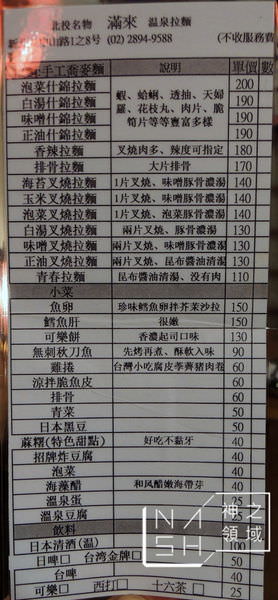 北投名物 滿來 溫泉拉麵
山路1之8號 (02) 2894-9588 (不收服務費
手工蕎麥麵 說明 單價 數
泡菜什錦拉麵 200
白湯什錦拉麵 蝦、蛤蜊、透抽、天婦 190
味噌什錦拉麵 羅、花枝丸、肉片、脆 190
正油什錦拉麵 筍片等等豐富多樣 190
香辣拉麵 叉燒肉多、辣度可指定 180
排骨拉麵 大片排骨 170
海苔叉燒拉麵 1片叉燒、味噌豚骨濃湯 140
玉米叉燒拉麵 1片叉燒、味噌豚骨濃湯 140
泡菜叉燒拉麵 1片叉燒、泡菜豚骨濃湯 140
白湯叉燒拉麵 兩片叉燒、豚骨濃湯 130
味噌叉燒拉麵 兩片叉燒、味噌豚骨濃湯 130
正油叉燒拉麵 兩片叉燒、正油豚骨濃湯 130
青春拉麵 昆布醬油清湯、没有肉 110
小菜
魚卵 珍味鱈魚卵拌芥茉沙拉 150
鱈魚肝 很嫩 150
可樂餅 香濃起司口味 130
無刺秋刀魚 先烤再煮、酥軟入味 90
雞捲 台灣小吃腐皮荸薺豬肉卷 60
涼拌脆魚皮 60
排骨 60
青菜 50
日本黑豆 50
蔴糬(特色甜點) 好吃不黏牙 40
招牌炸豆腐 40
泡菜 40
海藻醋 和風醋嫩海帶芽 40
溫泉蛋 25
溫泉豆腐
飲料
日本清酒(温) 100
日啤□ 台湾金牌□ 50
台啤 40
可樂□ 西打□ 十六茶□ 25
NASH 神之領域